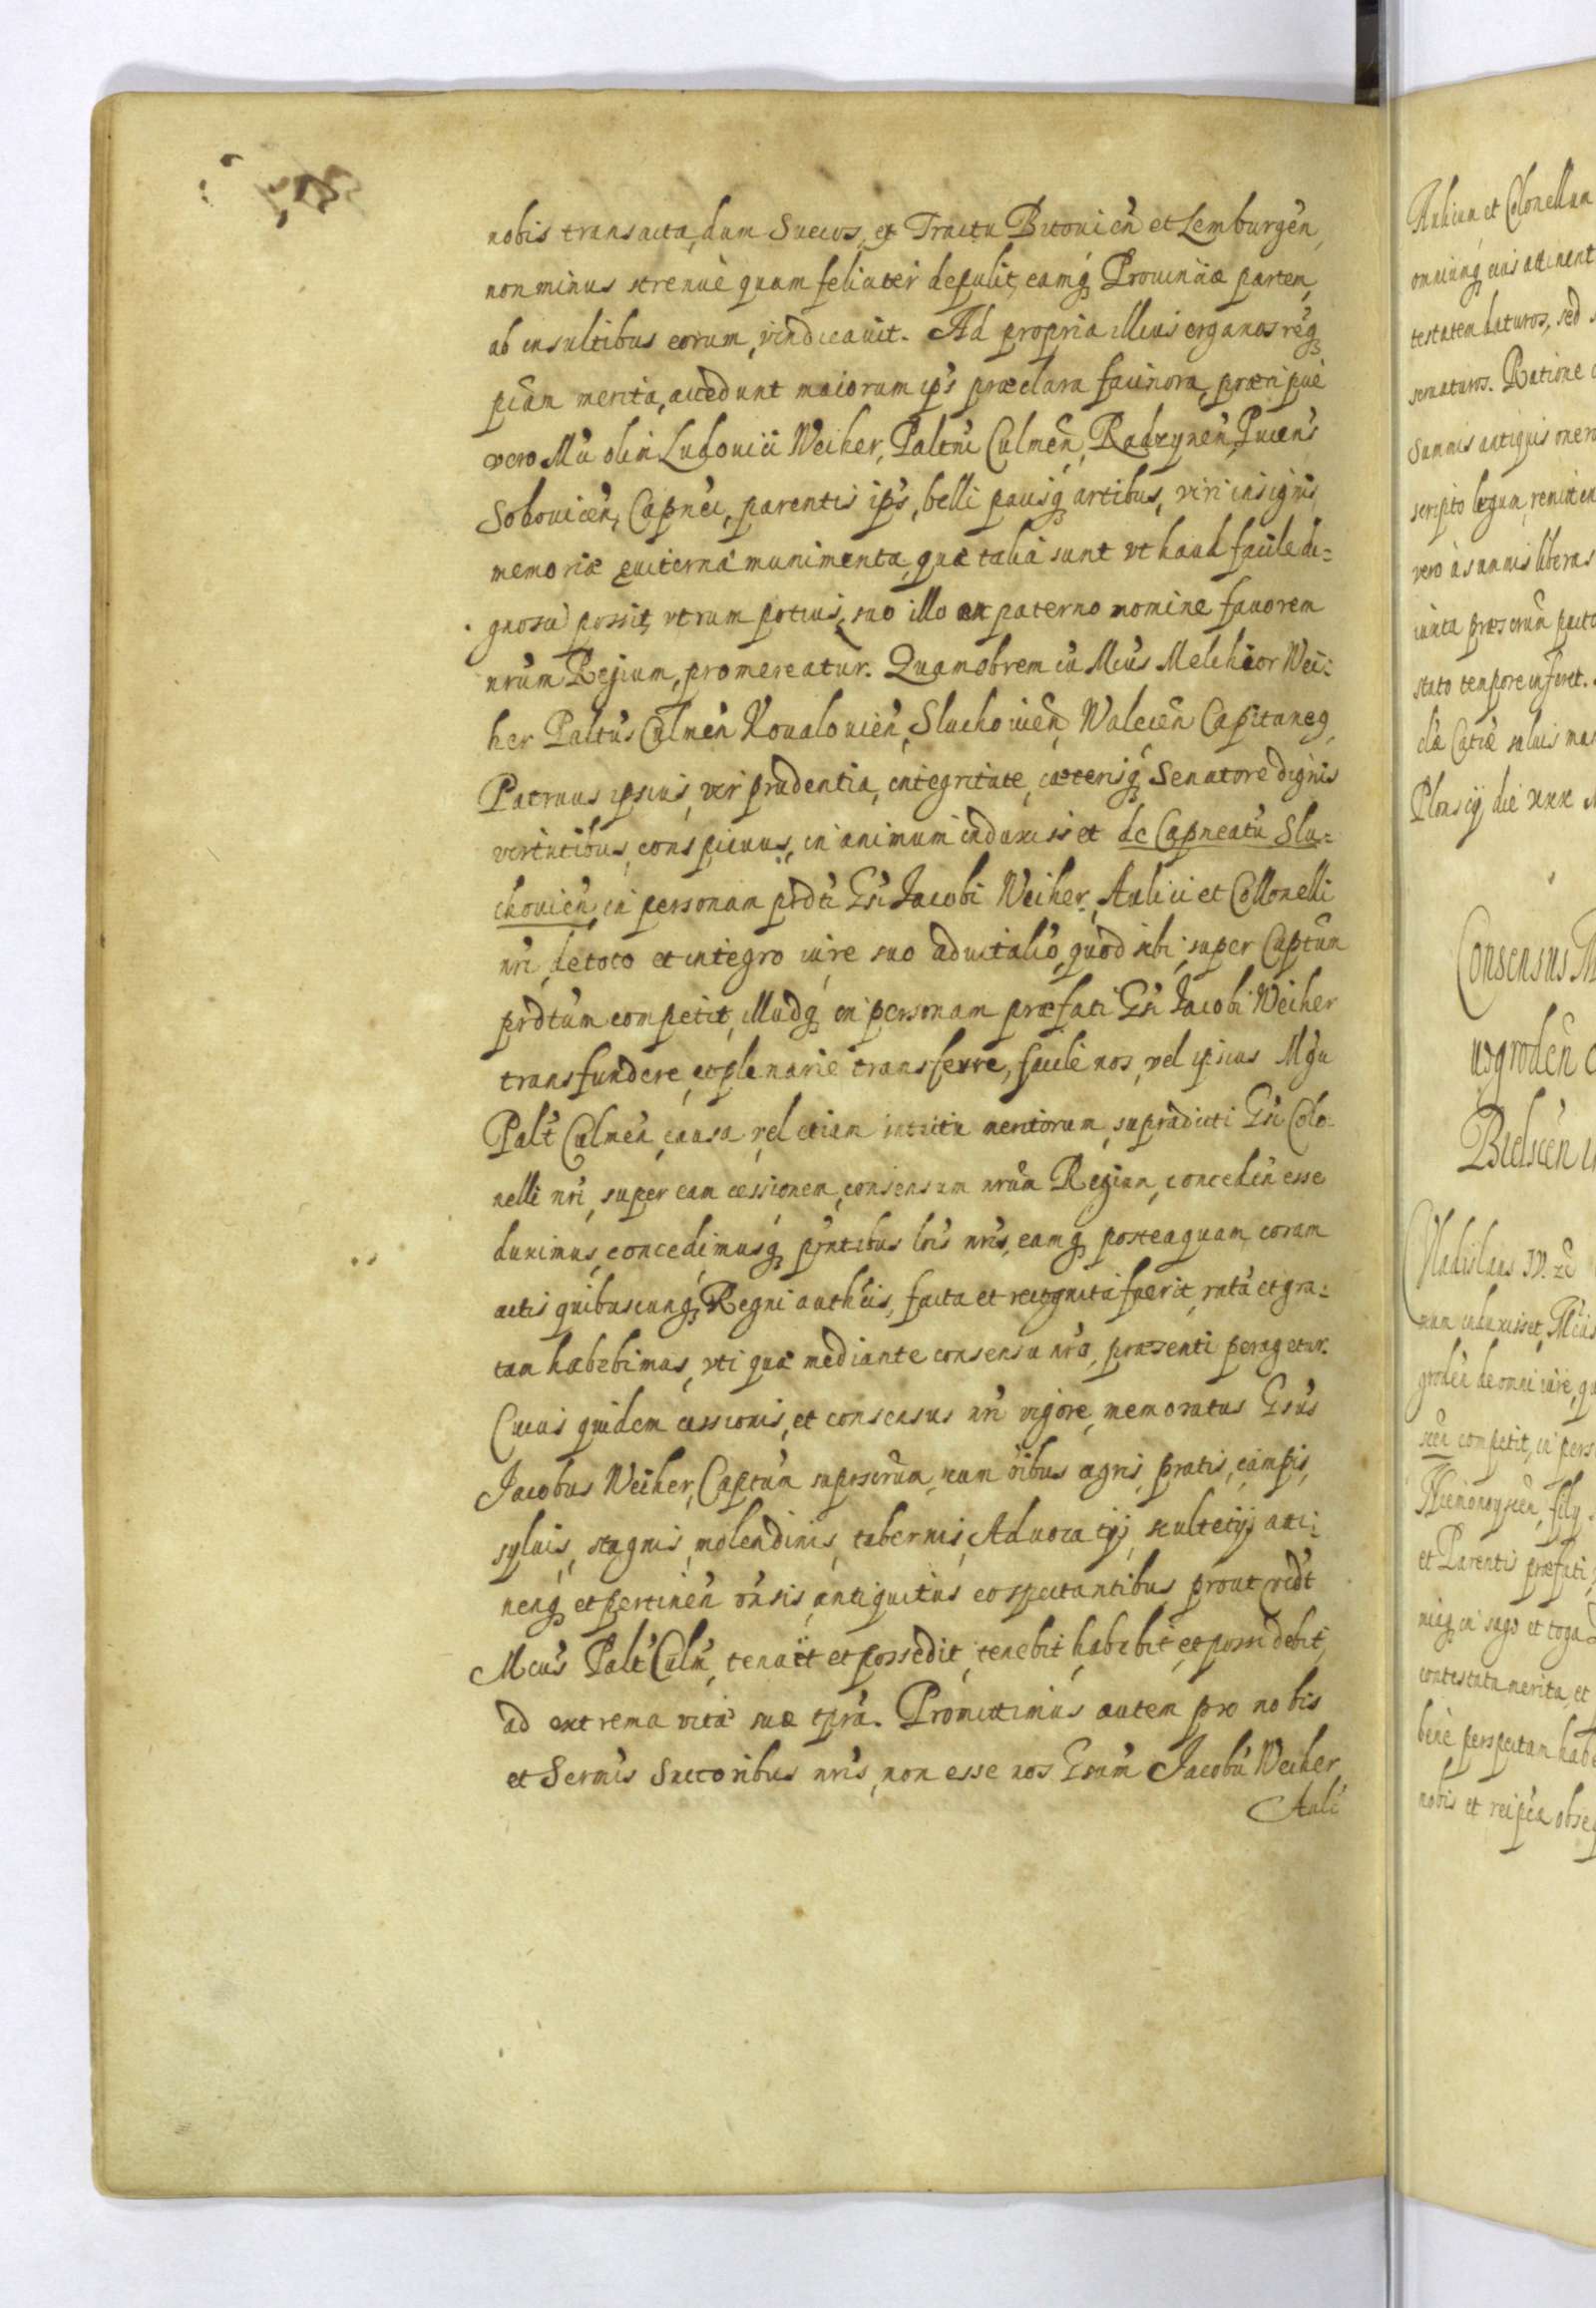 nobis transacta, dum Suecos, ex Tractu Bitouień et Lemburgeń,
non minus strenuè quam feliciter depulit, eamq́ Prouinciæ partem,
ab insultibus eorum, vindicauit. Ad propria illius erga nos reḿq
pcăm merita, accedunt maiorum ip̃s præclara facinora, præcipuè
vero Mci olim Ludouici Weiher, Palt̃ni Culmeń, Radzyneń, Pucens
Sobouiceń, Capnei, parentis ip̃s, belli pacisq́ artibus, viri insignis,
memoriæ æuiternæ munimenta, quæ talia sunt vt haud facile di=
gnosci possit, vtrum potius, suo illo an paterno nomine fauorem
nrũm Regium, promereatur. Quamobrem cũ Mcus Melchior Wei:
her Palt̃us Culmeń Koualouień, Sluchouień, Walceń Capitaneq,
Patruus ipsius, vir prudentia, integritate, cæterisq́ Senatore dignis
virtutibus, conspicuus, in animum induxisset de Capneatu Slu=
chouień, in personam prdti Gsi Jacobi Weiher, Aulici et Collonelli
nri, de toto et integro iure suo aduitalio, quod sibi, super Captum
prdtum competit, illudq́ in personam præfati Gsi Jacobi Weiher
transfundere, et plenarie transferre, facile nos, vel ipsius Mg̃ci
Palt̃ Culmeń, causa, vel etiam intuitu meritorum, supradicti Gsi Colo-
nelli nri, super eam cessionem, consensum nrũm Regium, concedeń esse
duximus, concedimusq́ pñtibus lr̃is nrĩs, eamq́ posteaquam coram
actis quibuscunq́, Regni autheis, facta et recognita fuerit, ratã et gra:
tam habebimus, vti quæ mediante consensu nrõ, præsenti peragetur.
Cuius quidem cessionis, et consensus nri vigore, memoratus Gsus
Jacobus Weiher, Captũm suprscrũm, cum õibus agris, pratis, campis,
syluis, stagnis, molendinis, tabernis, Aduocatijs, scultetijs, atti:
nenq́ et pertineń õnsis, antiquitus eo spectantibus, prout prdt
Mcus Palt̃ Culm̃, tenuit et possedit, tenebit, habebit, et possidebit,
ad extrema vitæ suæ tpra. Promittimus autem pro nobis
et Sermis Succoribus nrĩs, non esse nos Gsum Jacobũ Weiher
Auli
Aulicum et Colonellum
omniumq́ eius attinent
testatem daturos, sed
seruaturos. Ratione
Summis antiquis oner
scripto legum, remitten
vero à summis liberas
iuxta præscrũm pacto
stato tempore inferet.
clæ Catiæ saluis ma
Plonscij die xxx
Consensus
wgrodeń
Bielsceń
Vladislaus IV. zc
mum induxisset, Mcus
grodeń de omni iure, qu
sceń competit, in pers
fily
et Parentis præfati,
niaq́ in sago et toga
contestata merita, et
bene perspectam habe
nobis et reipcæ obseq